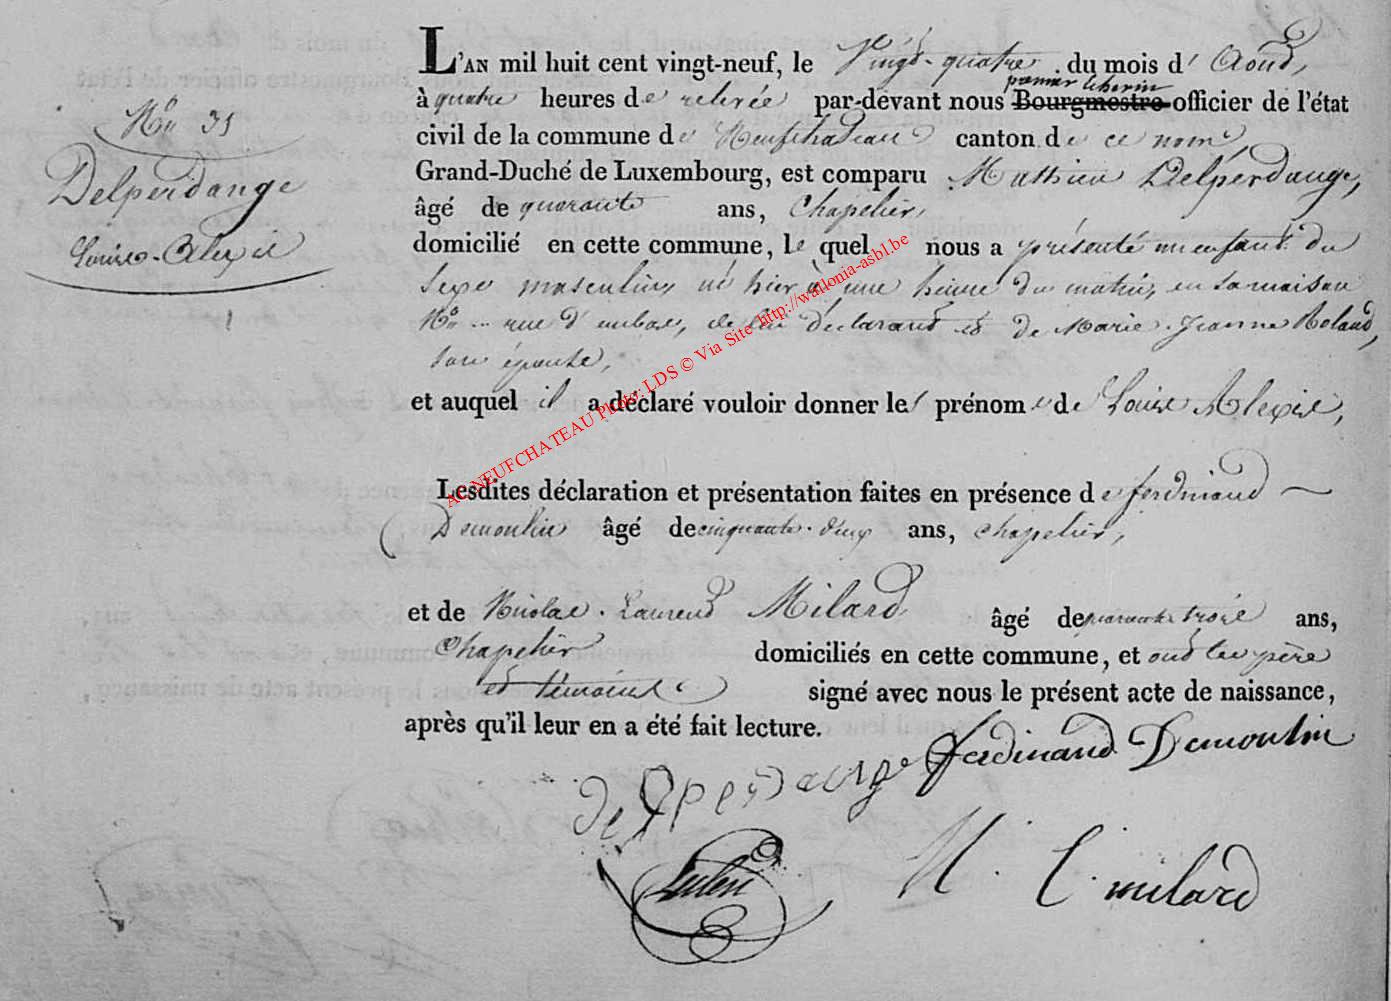 No 35
Delperdange
Louise-Alexise
L'AN mil huit cent vingt-neuf, le Vingt-quatre du mois d' Aout,
à quatre heures de relevée par-devant nous premier échevin Bourgmestre officier de l'état
civil de la commune de Neufchateau canton de ce nom,
Grand-Duché de Luxembourg, est comparu Mathieu Delperdange,
âgé de quarante ans, Chapelier,
domicilié en cette commune, le quel nous a présenté un enfant du
sexe masculin, né hier à une heure du matin, en sa maison
No rue d' de lui déclarant et de Marie-Jeanne Roland,
son épouse,
et auquel il a déclaré vouloir donner les prénoms de Louise Alexise,
Lesdites déclaration et présentation faites en présence de ferdinand
Demoulin âgé de cinquante-deux ans, chapelier,
et de Nicolas-Laurend Milard, âgé de quarante trois ans,
Chapelier domiciliés en cette commune, et ont les père
et témoins signé avec nous le présent acte de naissance,
après qu'il leur en a été fait lecture.
delperdange ferdinand Demoulin
N. L. milard
AC NEUFCHATEAU Photo: LDS © Via Site http://wallonia-asbl.be